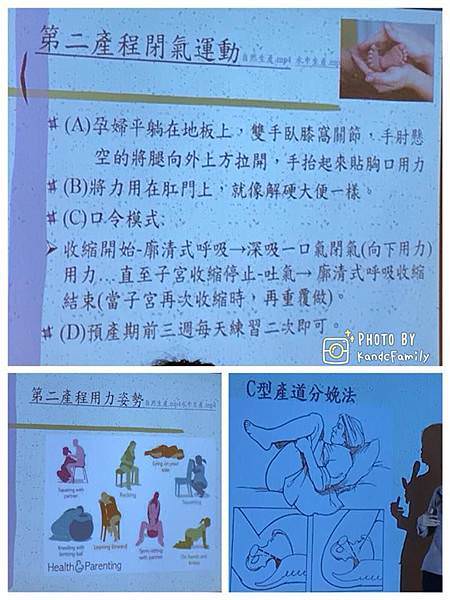 第二產程閉氣運動 自然生產.mp4 水中生產.mp4
(A)孕婦平躺在地板上，雙手臥膝窩關節，手肘懸
空的將腿向外上方拉開，手抬起來貼胸口用力
(B)將力用在肛門上，就像解硬大便一樣。
(C)口令模式:
收縮開始-廓清式呼吸→深吸一口氣閉氣(向下用力)
用力…直至子宮收縮停止-吐氣→廓清式呼吸收縮
結束(當子宮再次收縮時，再重覆做)。
(D)預產期前三週每天練習二次即可。
PHOTO BY
KandcFamily
第二產程用力姿勢 自然生產.mp4 水中生產.mp4
Squatting with
partner
Rocking
Lying on your
side
Squatting
Kneeling with
birthing ball
Leaning forward
Semi-sitting
with partner
On hands and
knees
Health&Parenting
C型產道分娩法